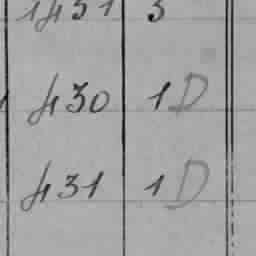 1431 3
430 1 D
431 1 D